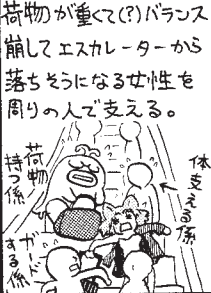 荷物が重くて(?)バランス
崩してエスカレーターから
落ちそうになる女性を
周りの人で支える。
体支える係
荷物
持つ係
ガード
する係